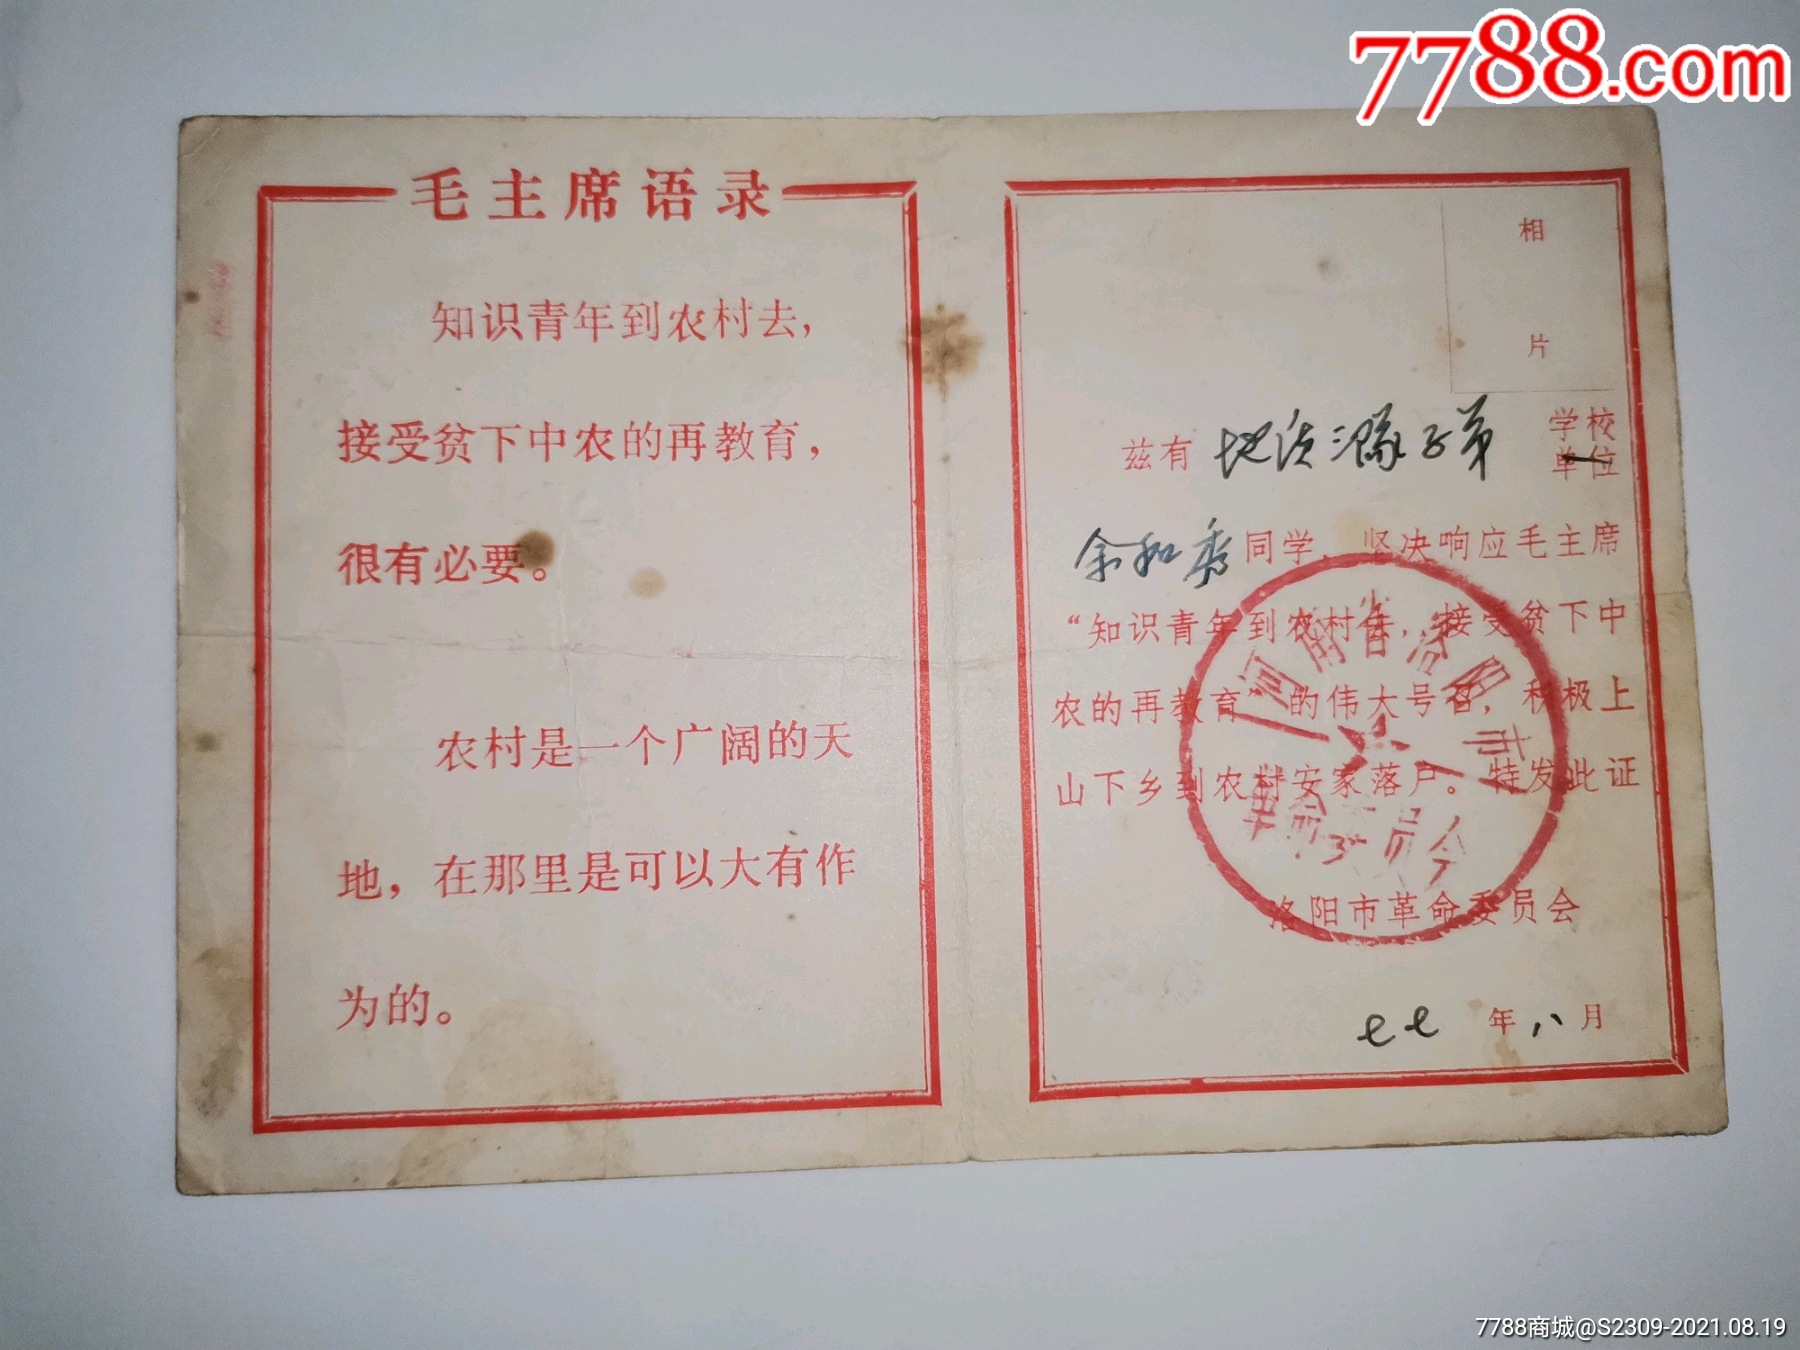 7788.com
毛主席语录
知识青年到农村去，
接受贫下中农的再教育，
很有必要。
农村是一个广阔的天
地，在那里是可以大有作
为的。
相
片
兹有 地质三队子弟 学校
单位
余和秀同学，坚决响应毛主席
“知识青年到农村去，接受贫下中
农的再教育”的伟大号召，积极上
山下乡到农村安家落户。特发此证
河南省洛阳市
革命委员会
洛阳市革命委员会
七七 年 八 月
7788商城@S2309-2021.08.19